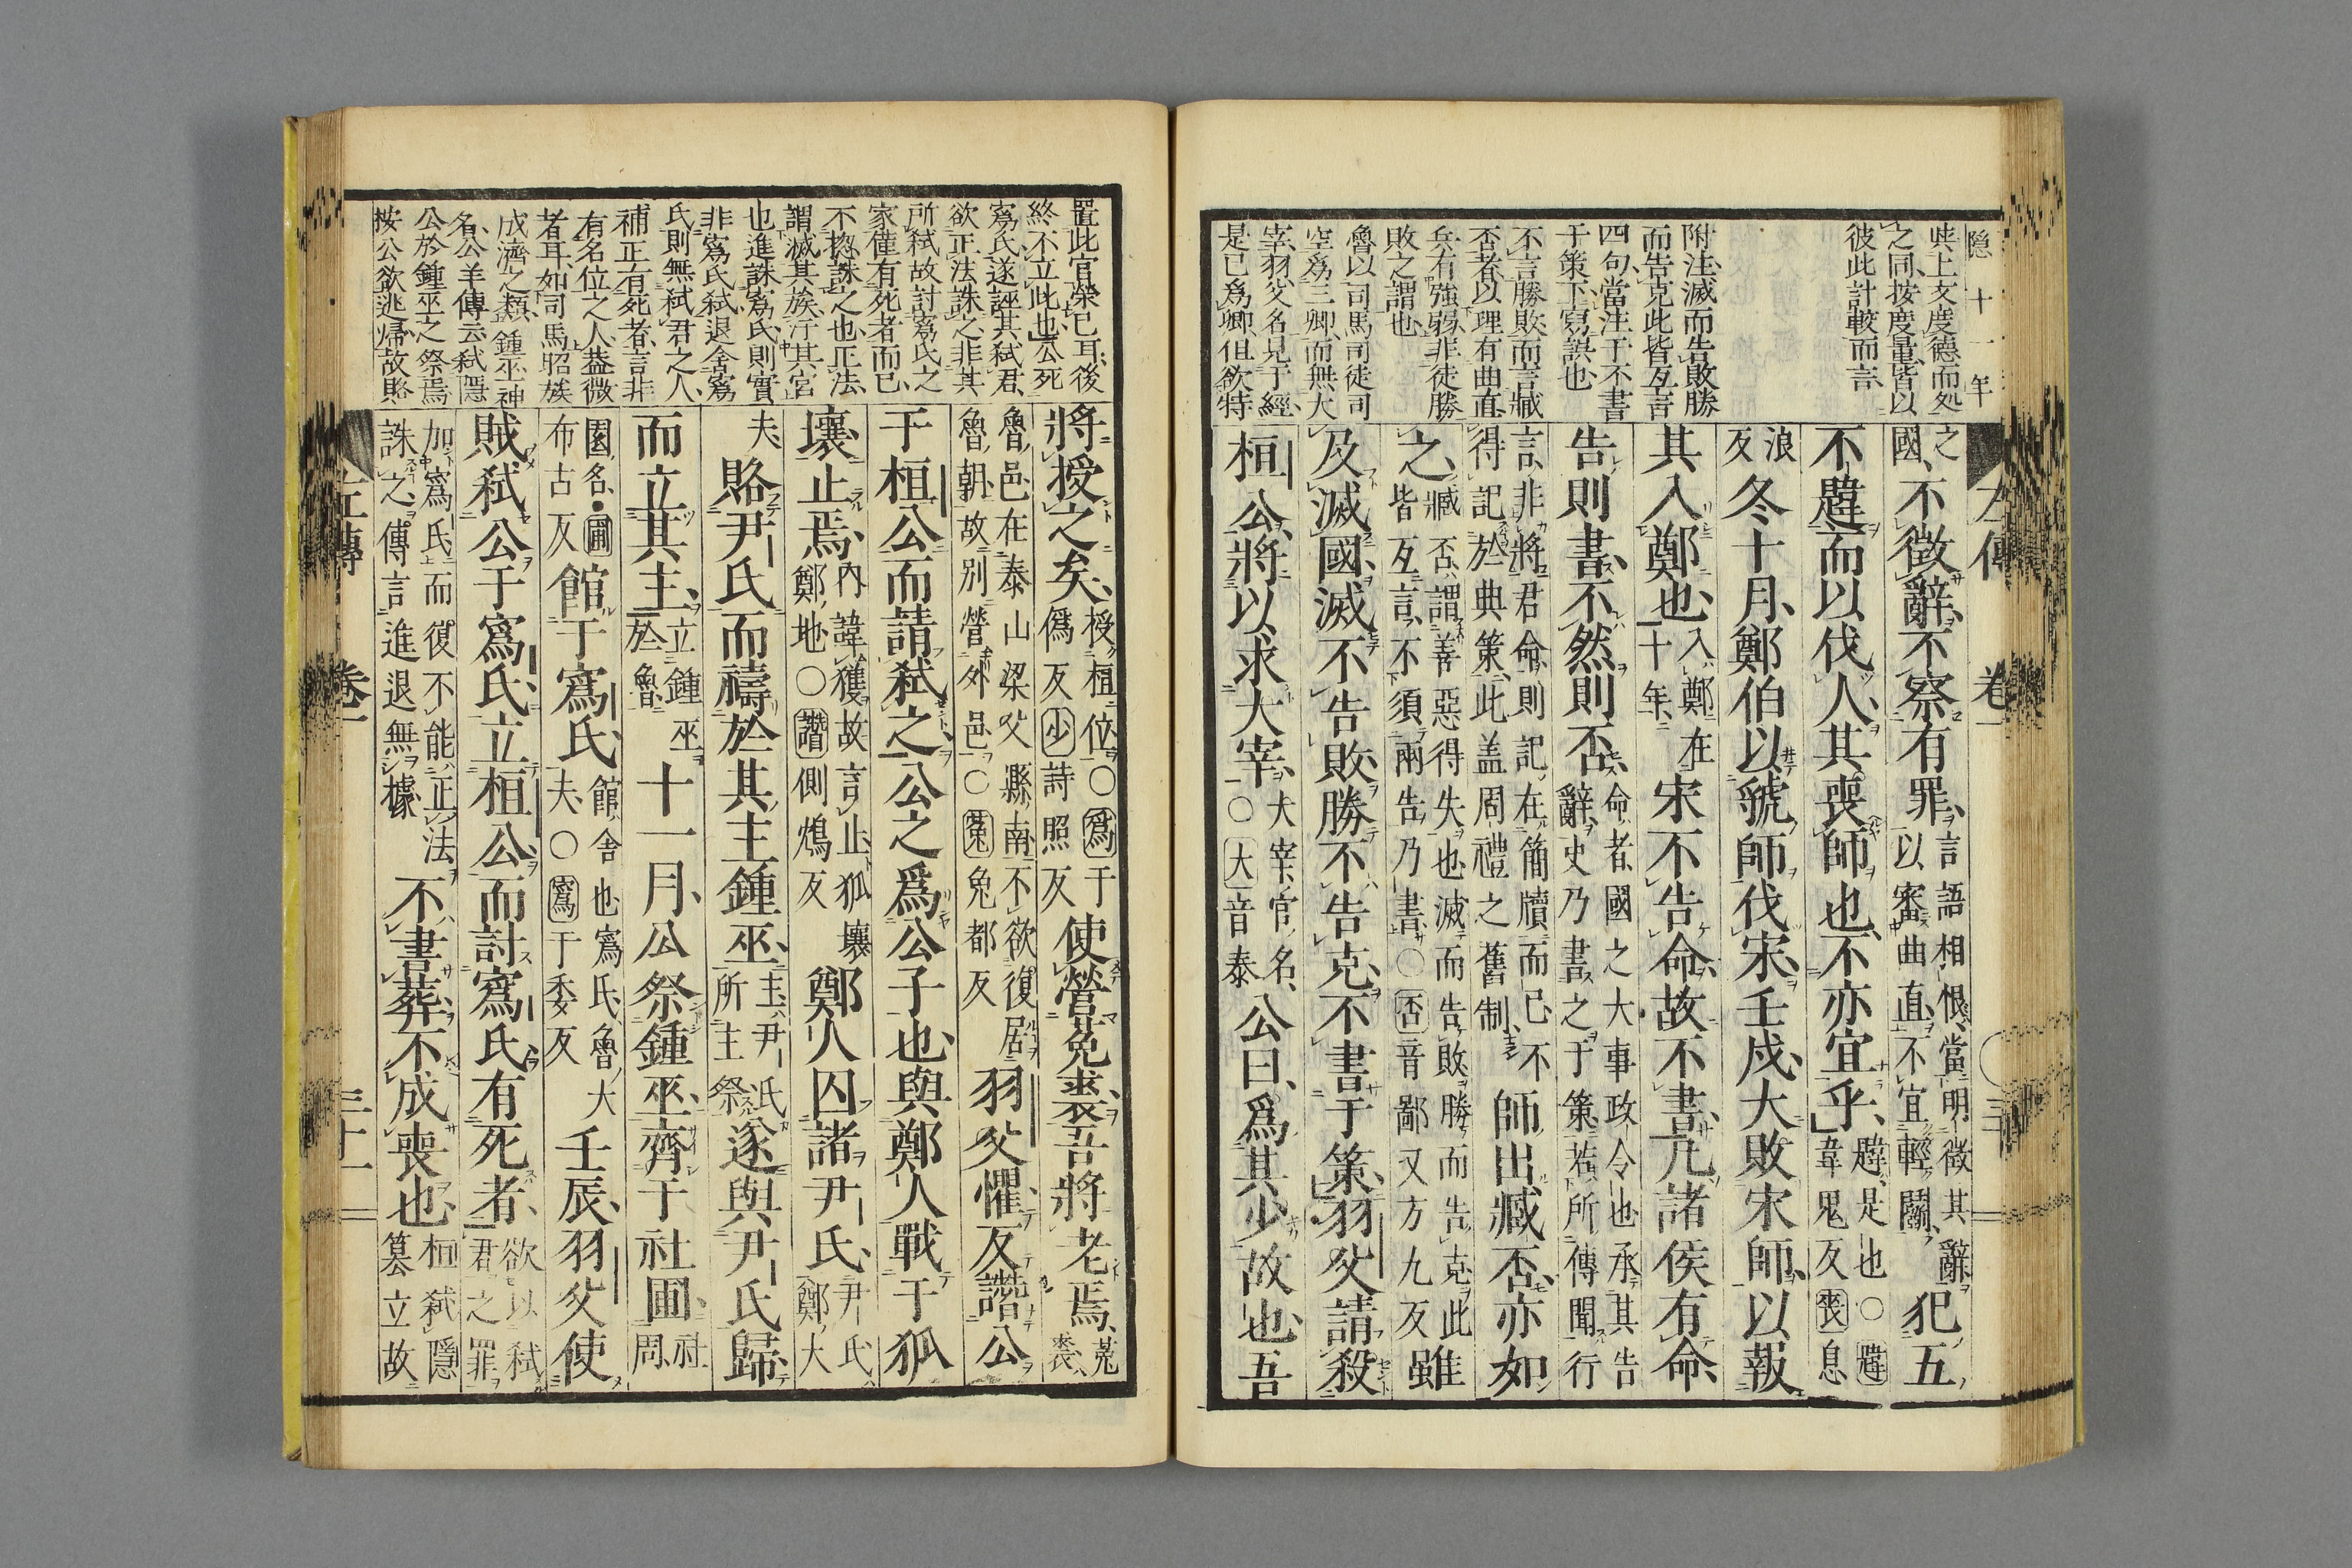 隠十一年
與上文度德而処
之同按度量皆以
彼此計較而言
附注滅而告敗勝
而告克此皆互言
四句當注于不書
于策下寫誤也
不言勝敗而言臧
否者以理有曲直
兵有強弱非徒勝
敗之謂也
魯以司馬司徒司
空爲三卿而無大
宰羽父名見于經
是已爲卿但欲特
左傳 卷一
之國不徵辭不察有罪言語相恨當明徵其辭以審曲直不宜輕鬭犯五
不韙而以伐人其喪師也不亦宜乎韙是也○韙韋鬼反喪息
浪反冬十月鄭伯以虢師伐宋壬戌大敗宋師以報
其入鄭也入鄭在十年宋不告命故不書凡諸侯有命
告則書不然則否命者國之大事政令也承其告辭史乃書之于策若所傳聞行
言非將君命則記在簡牘而已不得記於典策此盖周禮之舊制師出臧否亦如
之臧否謂善惡得失也滅而告敗勝而告克此皆互言不須兩告乃書○否音鄙又方九反雖
及滅國滅不告敗勝不告克不書于策羽父請殺
桓公將以求大宰大宰官名○大音泰公曰爲其少故也吾
置此官榮已耳後
終不立此也公死
寪氏遂誣其弑君
欲正法誅之非其
所弑故討寪氏之
家僅有死者而已
不揔誅之也正法
謂滅其族汙其宮
也進誅寪氏則實
非寪氏弑退舍寪
氏則無弑君之人
補正有死者言非
有名位之人葢微
者耳如司馬昭族
成濟之類鍾巫神
名公羊傳云弑隱
公於鍾巫之祭焉
按公欲逃歸故賂
將授之矣授桓位○爲于僞反少詩照反使營菟裘吾將老焉菟裘
魯邑在泰山梁父縣南不欲復居魯朝故別營外邑○菟兔都反羽父懼反譖公
于桓公而請弑之公之爲公子也與鄭人戰于狐
壤止焉內諱獲故言止狐壤鄭地○譖側鴆反鄭人囚諸尹氏尹氏鄭大
夫賂尹氏而禱於其主鍾巫主尹氏所主祭遂與尹氏歸
而立其主立鍾巫於魯十一月公祭鍾巫齊于社圃社圃
園名●圃布古反館于寪氏館舍也寪氏魯大夫○寪于委反壬辰羽父使
賊弑公于寪氏立桓公而討寪氏有死者欲以弑君之罪
加寪氏而復不能正法誅之傳言進退無據不書葬不成喪也桓弑隱篡立故
左傳 卷一 三十一